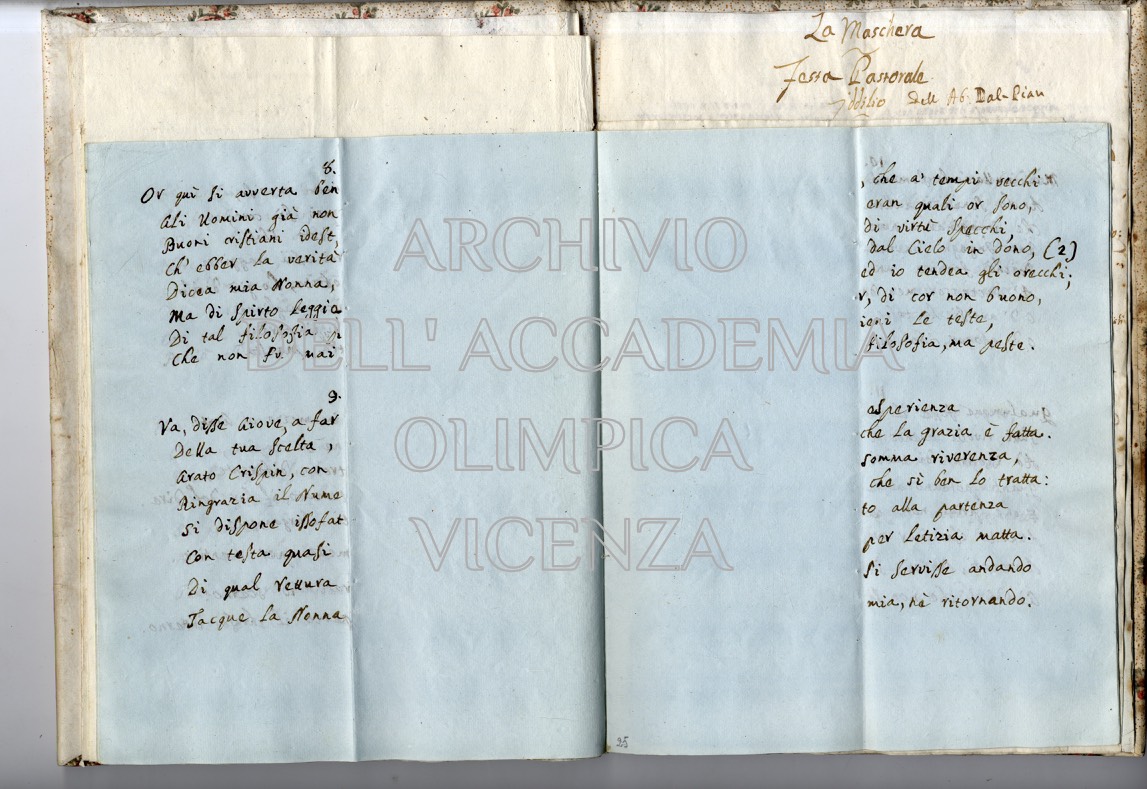 La Maschera
Festa Pastorale
Iddilio dell Ab. Dal-Pian
8.
Or quì si avverta ben
Gli Uomini già non
Buoni cristiani idest,
Ch' ebber la verità
Dicea mia Nonna,
Ma di spirto leggie
Di tal filosofia
Che non fu mai
, che a' tempi vecchi
eran quali or sono,
di virtù specchi,
dal Cielo in dono, (2)
ed io tendea gli orecchi;
r, di cor non buono,
ieni le teste,
filosofia, ma peste.
9.
Va, disse Giove, a far
Della tua scelta,
Grato Crispin, con
Ringrazia il Nume
Si dispone issofat
Con testa quasi
Di qual vettura
Tacque la Nonna
esperienza
che la grazia è fatta.
somma riverenza,
che sì ben lo tratta:
to alla partenza
per letizia matta.
si servisse andando
mia, nè ritornando.
25
ARCHIVIO
DELL' ACCADEMIA
OLIMPICA
VICENZA